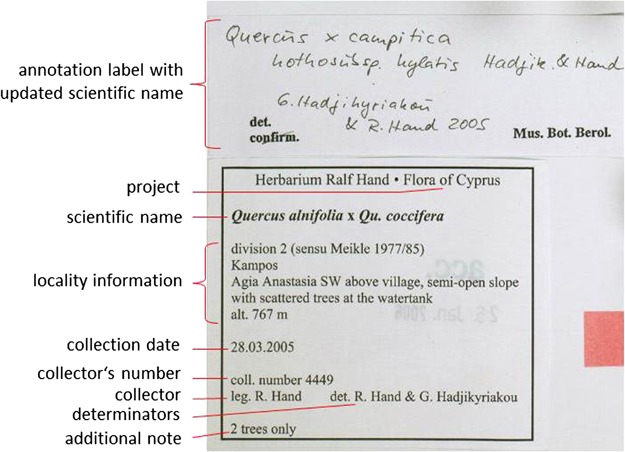 Quercus x campitica
nothosubsp. hylatis Hadjik. & Hand
annotation label with
updated scientific name
G. Hadjikyriakou
det. & R. Hand 2005
confirm. Mus. Bot. Berol.
project
Herbarium Ralf Hand • Flora of Cyprus
scientific name
Quercus alnifolia x Qu. coccifera
locality information
division 2 (sensu Meikle 1977/85)
Kampos
Agia Anastasia SW above village, semi-open slope
with scattered trees at the watertank
alt. 767 m
collection date
28.03.2005
collector's number
coll. number 4449
collector
leg. R. Hand det. R. Hand & G. Hadjikyriakou
determinators
additional note
2 trees only